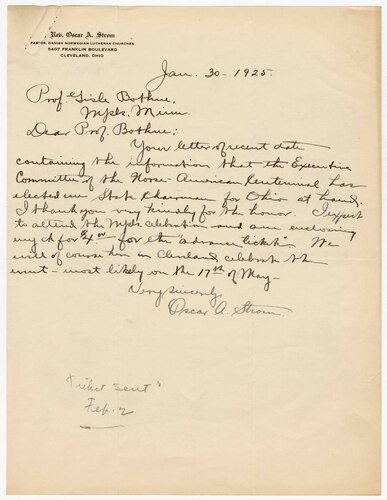 Rev. Oscar A. Strom
PASTOR, DANISH NORWEGIAN LUTHERAN CHURCHES
5407 FRANKLIN BOULEVARD
CLEVELAND, OHIO
Jan. 30 - 1925.
Prof. Gisle Bothne,
Mpls. Minn.
Dear Prof. Bothne:
Your letter of recent date
containing the information that the Executive
Committee of the Norse-American Centennial has
elected me State Chairman for Ohio at hand.
I thank you very kindly for the honor. I expect
to attend the Mpls celebration and am enclosing
my ck for $4.00 for the advance ticket. We
will of course here in Cleveland celebrate the
event - most likely on the 17th of May -
Very sincerely,
Oscar A. Strom.
"Ticket sent"
Feb. 2